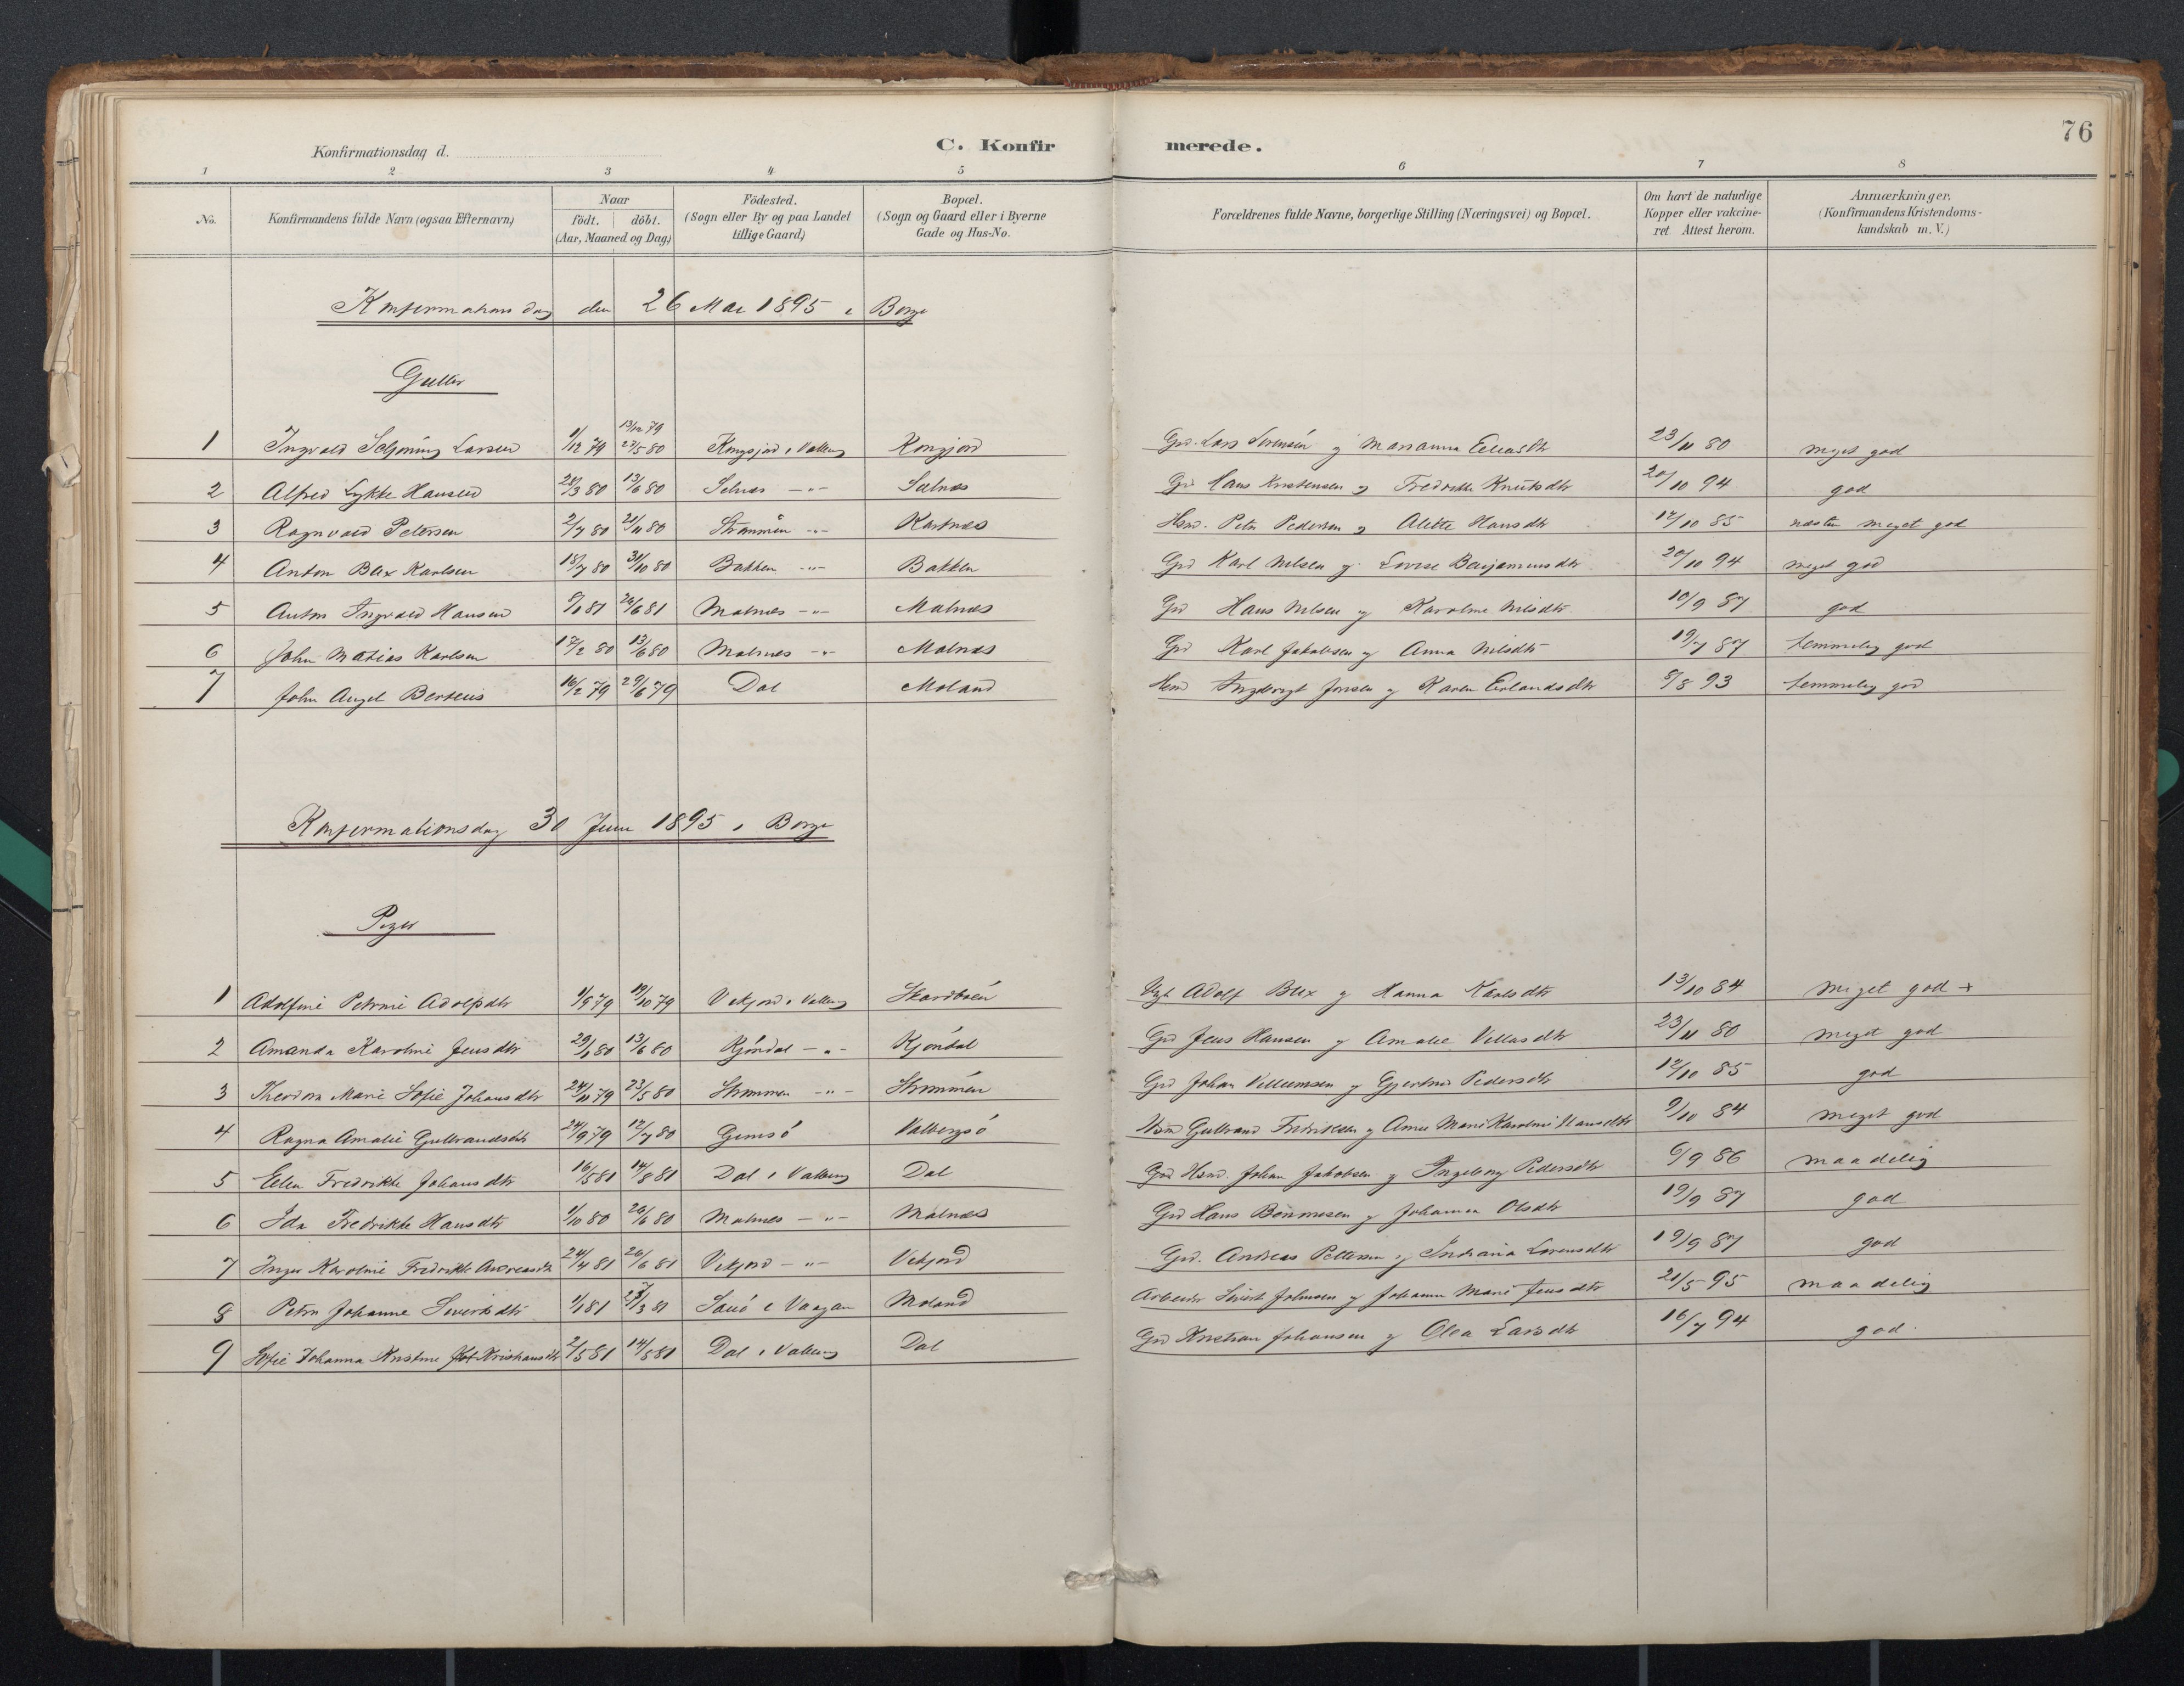 76
Konfirmationsdag d. C. Konfirmerede.
1 2 3 4 5 6 7 8
No. Konfirmandens fulde Navn (ogsaa Efternavn) Naar födt. döbt. (Aar, Maaned og Dag) Födested. (Sogn eller By og paa Landet tillige Gaard) Bopæl. (Sogn og Gaard eller i Byerne Gade og Hus-No. Forældrenes fulde Navne, borgerlige Stilling (Næringsvei) og Bopæl. Om havt de naturlige Kopper eller vakcineret Attest herom. Anmærkninger, (Konfirmandens Kristendomskundskab m. V.)
Konfirmationsdag den 26 Mai 1895 i Borge
Gutter
13/12 79
1 Ingvald Schjöning Larsen 1/12 79 23/5 80 Kongsjord i Valberg Kongjord Grd. Lars Lorensen og Marianna Eliasdtr 23/11 80 meget god
2 Alfred Lykke Hansen 28/3 80 13/6 80 Selnæs -"- Selnæs Grd Hans Kristensen og Fredrikke Knutsdtr 20/10 94 god
3 Ragnvald Petersen 2/7 80 21/11 80 Strömmen -"- Kartnæs Hsmd. Peter Pedersen og Alette Hansdtr 12/10 85 næsten meget god
4 Anton Blix Karlsen 18/7 80 31/10 80 Bakken -"- Bakken Grd Karl Nilsen og Lovise Benjaminsdtr 20/10 94 meget god
5 Anton Ingvald Hansen 9/1 81 26/6 81 Malnæs -"- Malnæs Grd Hans Nilsen og Karoline Nilsdtr 10/9 87 god
6 John Matias Karlsen 17/2 80 13/6 80 Malnæs -"- Malnæs Grd Karl Jakobsen og Anna Nilsdtr 19/7 87 temmelig god
7 John Angel Berteus 16/2 79 29/6 79 Dal Moland Hsmd Ingebrigt Jonsen og Karen Erlandsdtr 8/8 93 temmelig god
Konfirmationsdag 30 Juni 1895 i Borge
Piger
1 Adolfine Petrine Adolfsdtr 1/9 79 19/10 79 Vikjord i Valberg Skardbrön Adolf Blix og Hanna Karlsdtr 13/10 84 meget god +
2 Amanda Karoline Jensdtr 29/1 80 13/6 80 Kjöndal -"- Kjöndal Grd Jens Hansen og Amalie Villasdtr 23/11 80 meget god
3 Theodora Marie Sofie Johansdtr 24/11 79 23/5 80 Strömmen -"- Strömmen Grd Johan Villumsen og Gjertine Pedersdtr 12/10 85 god
4 Ragna Amalie Gulbrandsdtr 24/9 79 12/7 80 Gimsö Valbergsö Hsmd Gulbrand Fredriksen og Anne Marie Karoline Hansdtr 9/10 84 meget god
5 Ellen Fredrikke Johansdtr 16/5 81 14/8 81 Dal i Valberg Dal Grd Hsmd. Johan Jakobsen og Ingeborg Pedersdtr 6/9 86 maadelig
6 Ida Fredrikke Hansdtr 1/10 80 26/6 80 Malnæs -"- Malnæs Grd Hans Rönnesen og Johanna Olsdtr 19/9 87 god
7 Inger Karoline Fredrikke Andreasdtr 24/4 81 26/6 81 Vikjord -"- Vikjord Grd. Andreas Pettersen og Indiana Lorensdtr 19/9 87 god
8 Petra Johanne Sivertsdtr 1/1 81 27/3 81 i Vaagan Moland Arbeider Sivert Johnsen og Johanna Marie Jensdtr 21/5 95 maadelig
9 Sofie Johanna Kristine Kristiansdtr 2/5 81 14/8 81 Dal i Valberg Dal Grd Kristian Johansen og Olea Larsdtr 16/7 94 god